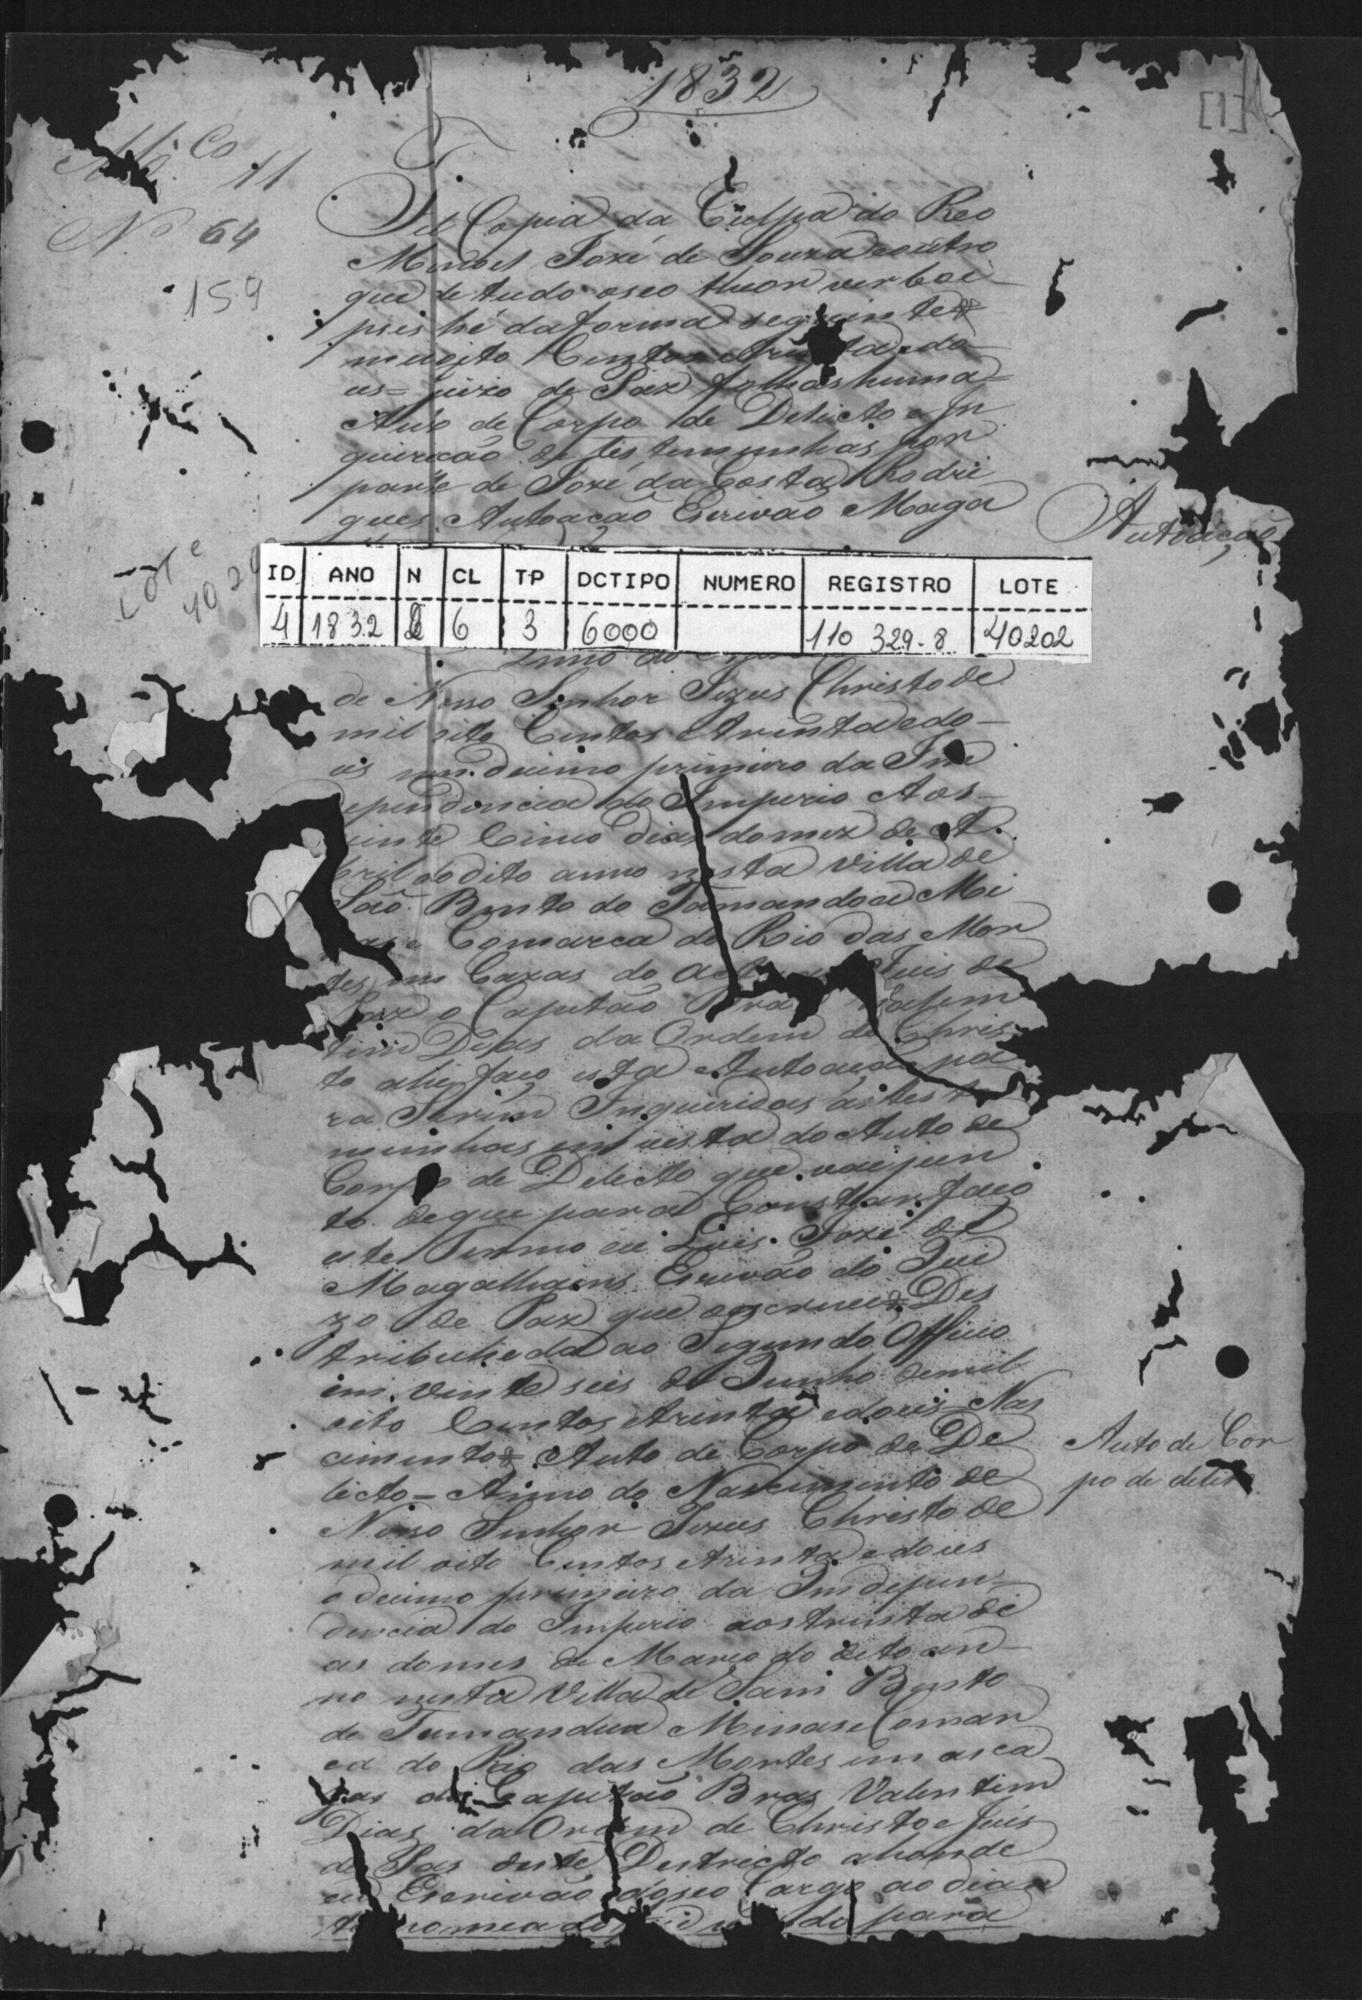 1832
[1]
Mç Co 11
Nº 64
159
Fiel Copia da Culpa do Reo
Manoel Jozé de Souza e outro
que de tudo o seo theor verboe
pris hé da forma seguinte
mil oito Centos e trinta e do
us = juizo de Paz folhas huma =
Auto de Corpo de Delicto e In
quiricão de testemunhas por
parte de Jozé da Costa Rodri
gues Autoacão Escrivão Maga
Autoacão
Lote
4020
ID ANO N CL TP DCTIPO NUMERO REGISTRO LOTE
4 1832 2 6 3 6000 110 329-8 40202
Anno do
de Nosso Senhor Jezus Christo de
mil oito Centos e trinta e do
us undecimo primeiro da Inde
ependencia do Imperio Aos
vinte Cinco dias do mez de A
bril do dito anno nesta Villa de
São Bento do Tamandoa Mi
nas e Comarca do Rio das Mor
tes em Cazas do Juis de
Paz o Capitão Bras Valem
tim Dias da Ordem de Chris
to ahi faço esta Autoacão pa
ra Serem Inqueridas as teste
munhas em vesta do Auto de
Corpo de Delicto que vai jun
to deque para Constar faço
este Termo eu Luis Jozé de
Magalhaens Escrivão do Jui
zo de Paz que o escrevi Des
tribuhida ao Segundo Officio
em vinte seis de Junho de mil
oito Centos e trinta e dois Nas
cimento Auto de Corpo de De
licto = Anno do Nascimento de
Auto de Cor
po de delicto
Nosso Senhor Jezus Christo de
mil oito Centos e trinta e dous
o decimo primeiro da Indepen
dencia do Imperio aos trinta di
as do mes de Março do dito an
no nesta Villa de Sam Bento
de Tamandua Minas e Comar
ca do Rio das Mortes em as ca
zas do Capitão Bras Valentim
Dias da Ordem de Christo e Juis
de Pas deste Destricto ahonde
eu Escrivão do seo Cargo ao dian
te nomeado para